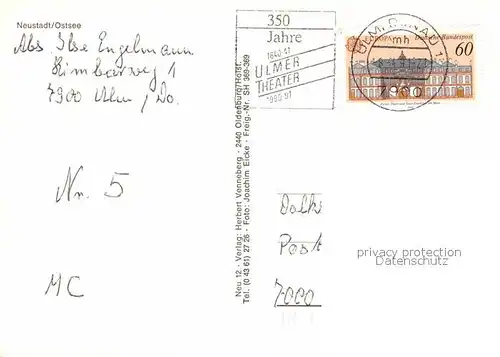 Neustadt/Ostsee
Abs. Ilse Engelmann
7900 Ulm / Do.
Nr. 5
MC
350
Jahre
1640/41
ULMER
THEATER
1990/91
EUROPA Deutsche Bundespost
60
ULM, DONAU 1
mh
7900
Neu 12 · Verlag: Herbert Venneberg · 2440 Oldenburg/Holst.
Tel. (0 43 61) 27 26 · Foto: Joachim Eicke · Freig.-Nr. SH 369-369
Post
7000
privacy protection
Datenschutz